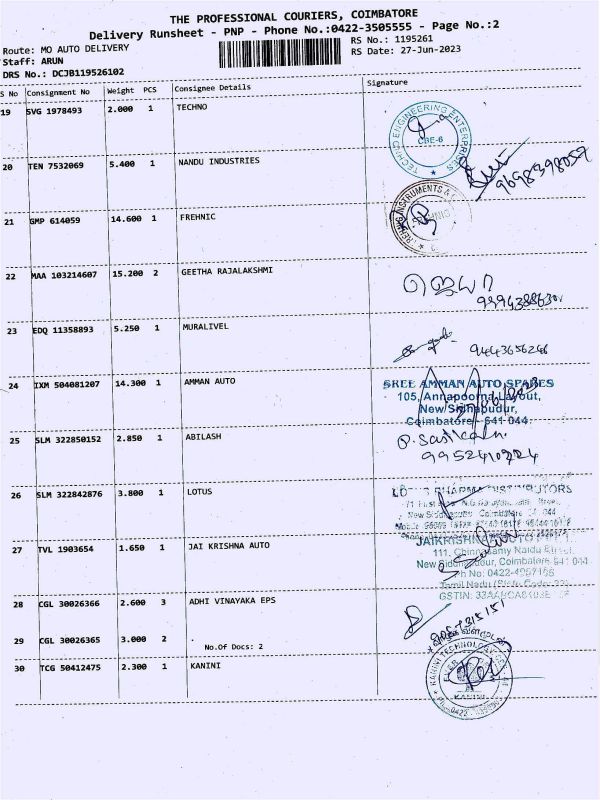 THE PROFESSIONAL COURIERS, COIMBATORE
Delivery Runsheet - PNP - Phone No.:0422-3505555 - Page No.:2
Route: MO AUTO DELIVERY
RS No.: 1195261
Staff: ARUN
RS Date: 27-Jun-2023
DRS No.: DCJB119526102
S No Consignment No Weight PCS Consignee Details Signature
19 SVG 1978493 2.000 1 TECHNO
TECHNO ENGINEERING ENTERPRISES
CBE-6
20 TEN 7532069 5.400 1 NANDU INDUSTRIES
9698398057
21 GMP 614059 14.600 1 FREHNIC
22 MAA 103214607 15.200 2 GEETHA RAJALAKSHMI
23 EDQ 11358893 5.250 1 MURALIVEL
9443656246
24 IXM 504081207 14.300 1 AMMAN AUTO
SREE AMMAN AUTO SPARES
105, Annapoorna Layout,
New Sidhapudur,
Coimbatore - 641 044.
25 SLM 322850152 2.850 1 ABILASH
26 SLM 322842876 3.800 1 LOTUS
LOTUS PHARMA DISTRIBUTORS
27 TVL 1903654 1.650 1 JAI KRISHNA AUTO
111, Chinnasamy Naidu Street,
New Siddhapudur, Coimbatore-641 044
28 CGL 30026366 2.600 3 ADHI VINAYAKA EPS
29 CGL 30026365 3.000 2
No.Of Docs: 2
30 TCG 50412475 2.300 1 KANINI
KANINI